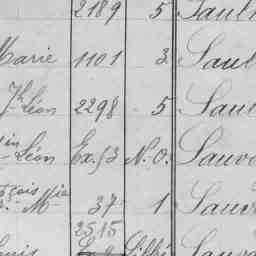 2189 5 Saul
Marie 1101 3 Saul
Jh Léon 2298 5 Sau
in
Léon Ex. 53 N. O. Sauv
çois Mie
Me 37 1 Sauv
2515